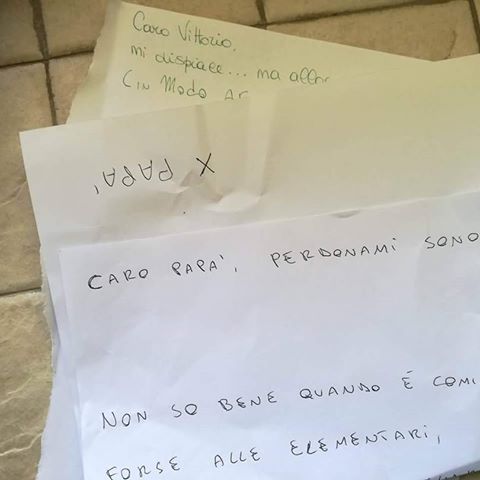 Caro Vittorio,
mi dispiace... ma allor
(in modo ar
X PAPA'
CARO PAPA', PERDONAMI SONO
NON SO BENE QUANDO É COMI
FORSE ALLE ELEMENTARI,